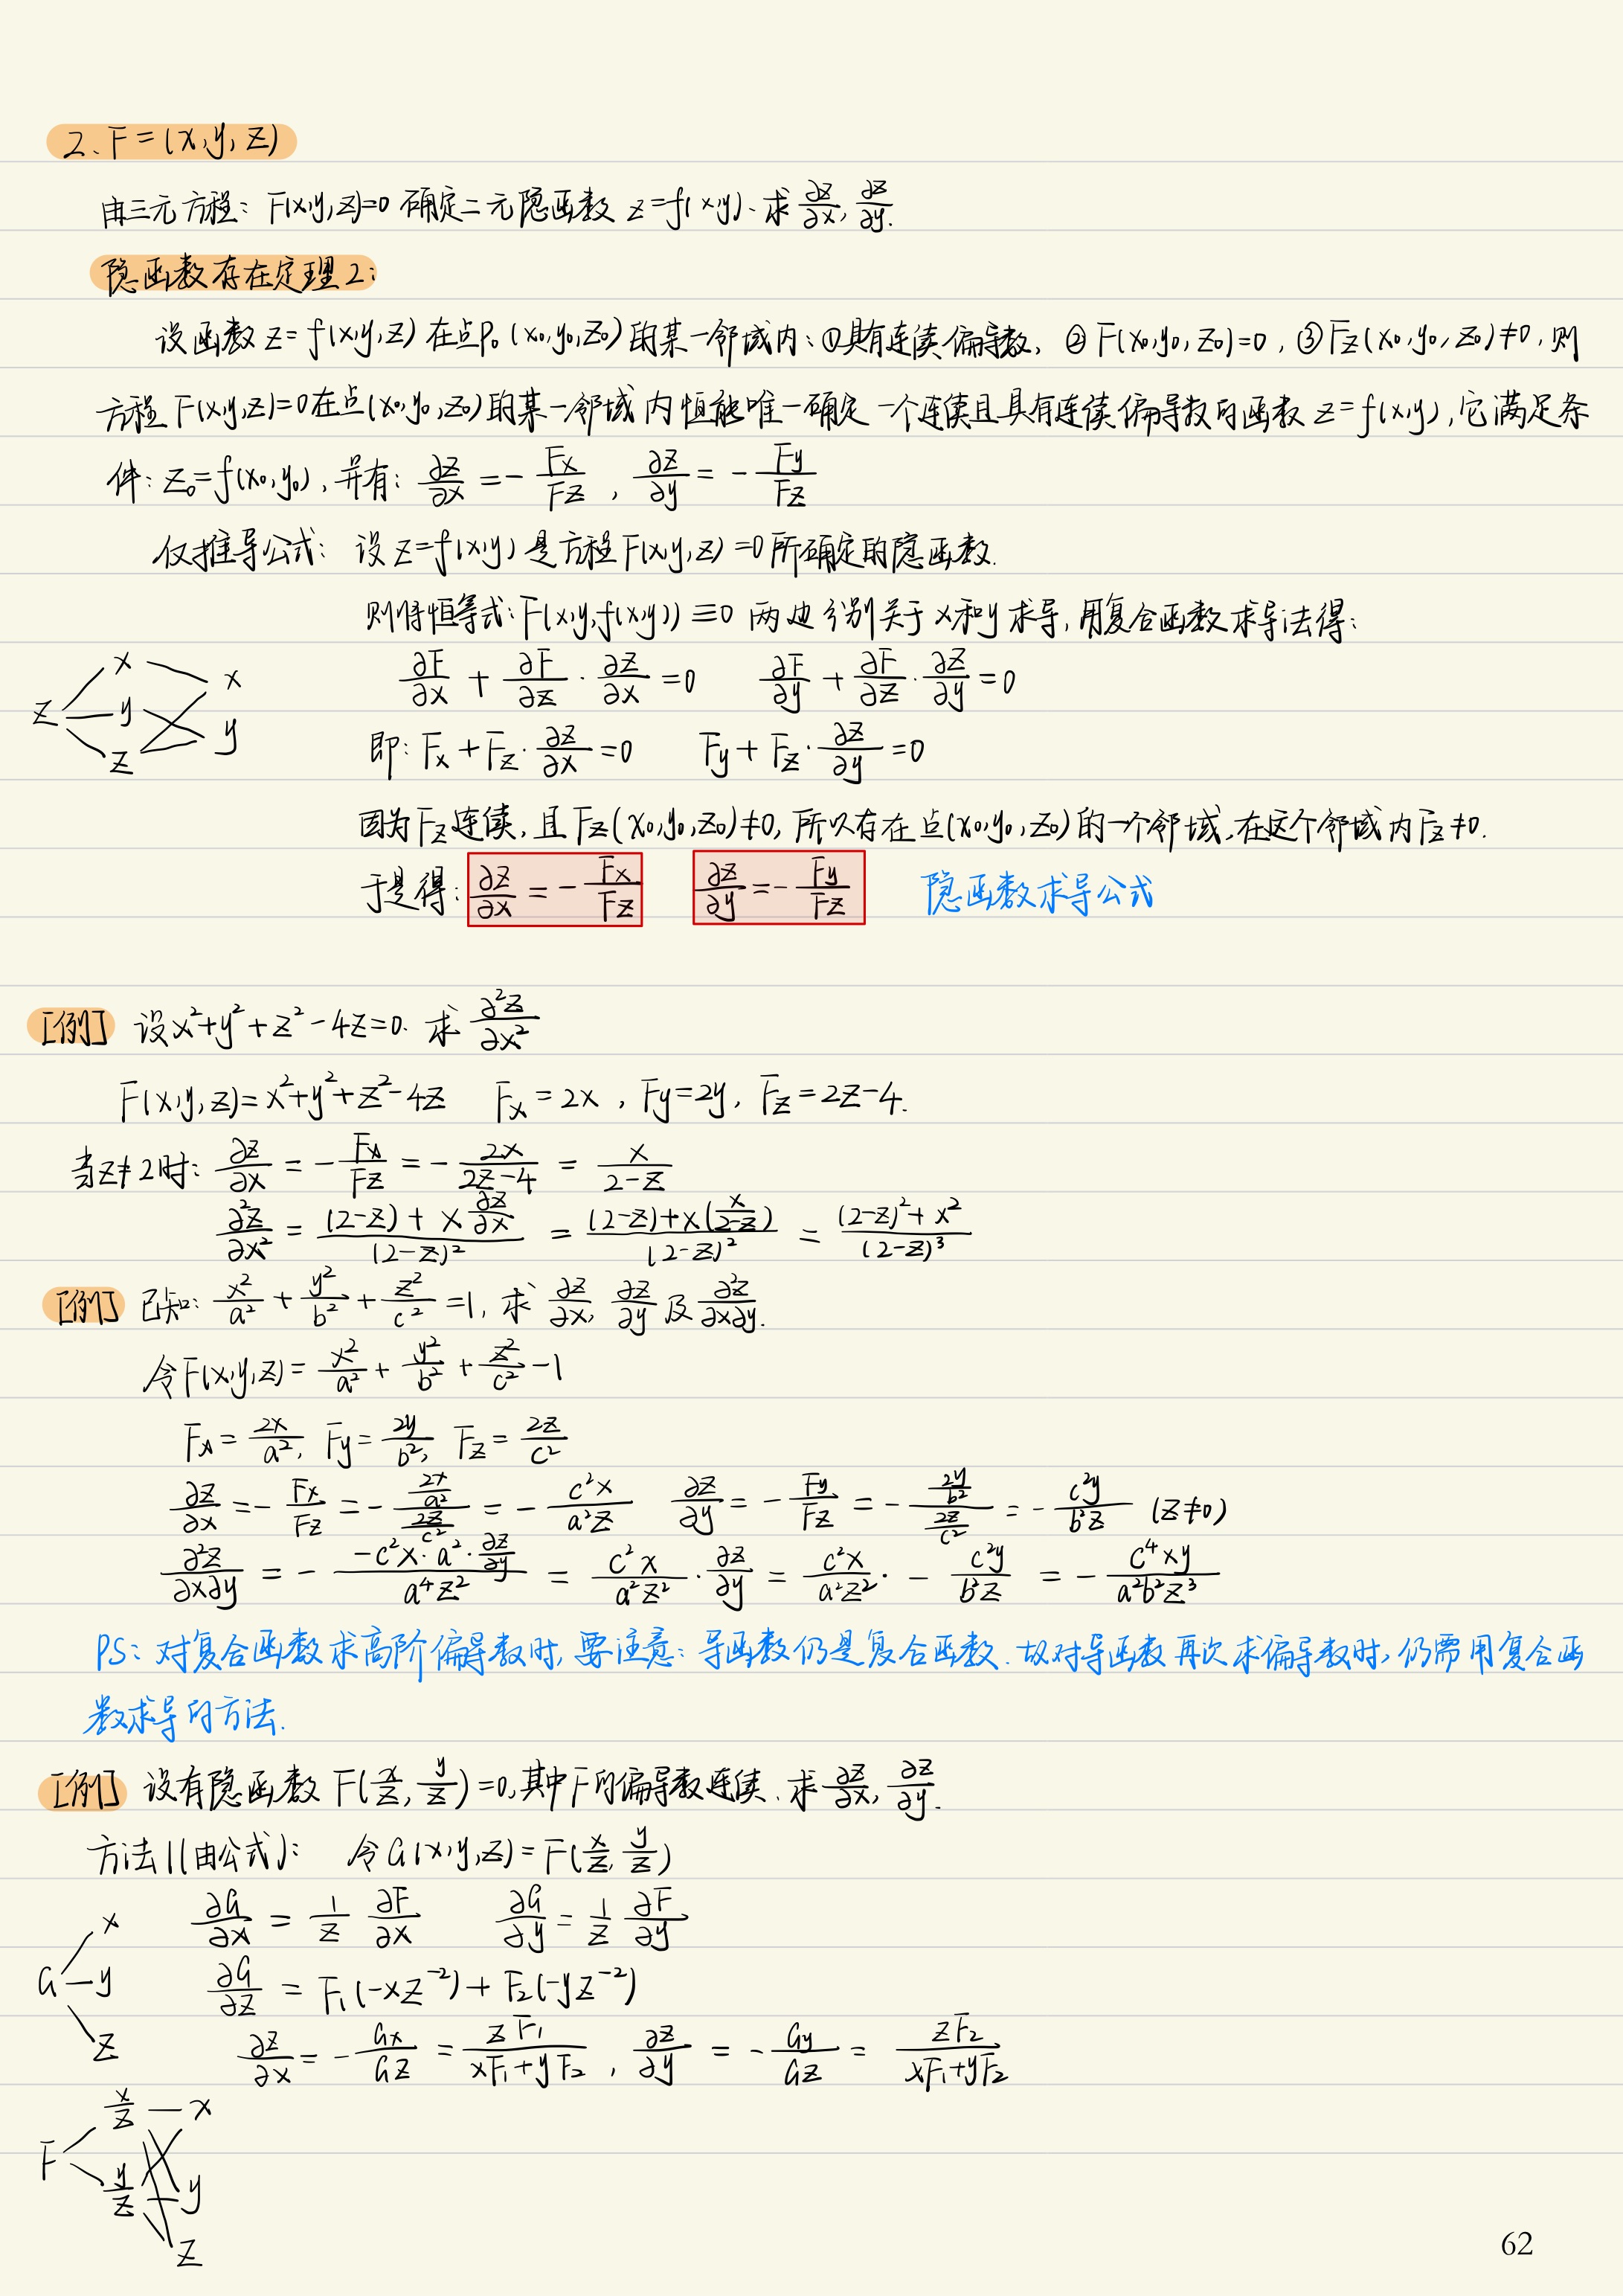 2、F=(x,y,z)
由三元方程：F(x,y,z)=0 确定二元隐函数 z=f(x,y)、求 ∂z/∂x, ∂z/∂y.
隐函数存在定理2:
设函数 z=f(x,y,z) 在点P₀(x₀,y₀,z₀)的某一邻域内：①具有连续偏导数，②F(x₀,y₀,z₀)=0，③Fz(x₀,y₀,z₀)≠0，则
方程 F(x,y,z)=0在点(x₀,y₀,z₀)的某一邻域内恒能唯一确定一个连续且具有连续偏导数的函数 z=f(x,y)，它满足条
件：z₀=f(x₀,y₀)，并有：∂z/∂x=-Fx/Fz，∂z/∂y=-Fy/Fz
仅推导公式：设 z=f(x,y) 是方程F(x,y,z)=0所确定的隐函数.
则将恒等式：F(x,y,f(x,y))≡0 两边分别关于x和y求导，用复合函数求导法得：
∂F/∂x + ∂F/∂z · ∂z/∂x =0 ∂F/∂y + ∂F/∂z · ∂z/∂y =0
z x y z x y
即：Fx+Fz·∂z/∂x=0 Fy+Fz·∂z/∂y=0
因为Fz连续，且Fz(x₀,y₀,z₀)≠0，所以存在点(x₀,y₀,z₀)的一个邻域，在这个邻域内Fz≠0.
于是得：∂z/∂x=-Fx/Fz ∂z/∂y=-Fy/Fz 隐函数求导公式
[例] 设x²+y²+z²-4z=0. 求 ∂²z/∂x²
F(x,y,z)=x²+y²+z²-4z Fx=2x，Fy=2y，Fz=2z-4.
当z≠2时：∂z/∂x=-Fx/Fz=-2x/(2z-4)=x/(2-z)
∂²z/∂x²=((2-z)+x ∂z/∂x)/(2-z)²=((2-z)+x(x/(2-z)))/(2-z)²=((2-z)²+x²)/(2-z)³
[例] 已知：x²/a²+y²/b²+z²/c²=1，求 ∂z/∂x, ∂z/∂y 及 ∂²z/∂x∂y.
令F(x,y,z)=x²/a²+y²/b²+z²/c²-1
Fx=2x/a², Fy=2y/b², Fz=2z/c²
∂z/∂x=-Fx/Fz=-(2x/a²)/(2z/c²)=-c²x/a²z ∂z/∂y=-Fy/Fz=-(2y/b²)/(2z/c²)=-c²y/b²z (z≠0)
∂²z/∂x∂y=-(-c²x·a²·∂z/∂y)/(a⁴z²)=c²x/a²z²·∂z/∂y=c²x/a²z²·-c²y/b²z=-c⁴xy/a²b²z³
PS：对复合函数求高阶偏导数时，要注意：导函数仍是复合函数.故对导函数再次求偏导数时，仍需用复合函
数求导的方法.
[例] 设有隐函数 F(x/z, y/z)=0,其中F的偏导数连续、求∂z/∂x, ∂z/∂y.
方法1(由公式)：令G(x,y,z)=F(x/z, y/z)
∂G/∂x=1/z ∂F/∂x ∂G/∂y=1/z ∂F/∂y
G x y z
∂G/∂z=F₁(-xz⁻²)+F₂(-yz⁻²)
∂z/∂x=-Gx/Gz=zF₁/(xF₁+yF₂)，∂z/∂y=-Gy/Gz=zF₂/(xF₁+yF₂)
F x/z y/z x y z
62